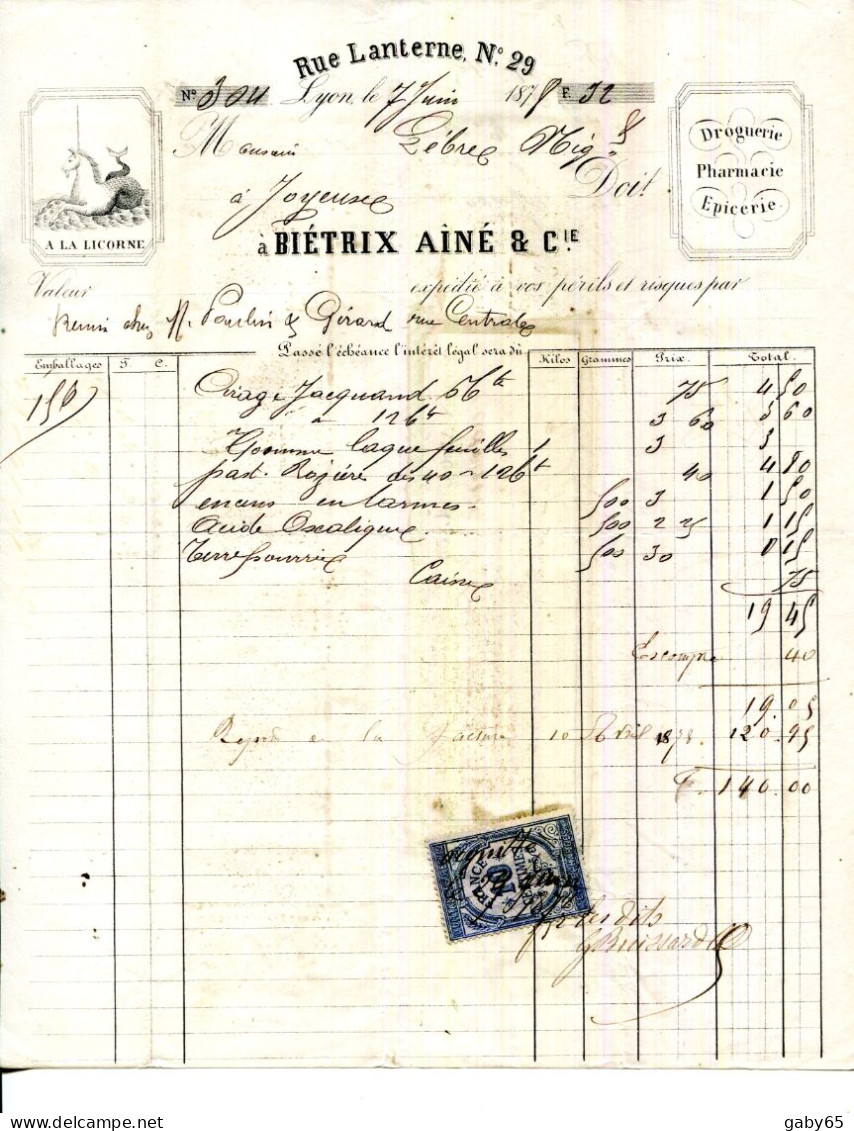 Rue Lanterne, N.º 29
Nº 304 Lyon, le 7 Juin 1878 F. 32
A LA LICORNE
Droguerie
Pharmacie
Epicerie
Monsieur Lèbre Nég
Doit
à Joyeuse
à BIÉTRIX AÎNÉ & C.IE
Valeur expédié à vos périls et risques par
Remis chez M. Paulin & Girard rue Centrale
Passé l'échéance l'intérêt légal sera dû
Emballages F. C. Kilos Grammes Prix Total
156 Cirage Jacquand 6 Bte 75 4 50
à 12 6 3 60 3 60
Gomme laque feuilles 1 3 3
past. Rozière des 40 12 6 40 4 80
encens en larmes 500 3 1 50
Acide Oxalique 500 2 25 1 15
Terre pourrie 500 30 0 15
Caisse 75
19 45
Escompte 40
19.05
la facture 10 Avril 1878. 120.95
F. 140.00
FRANCE
10
gaby65